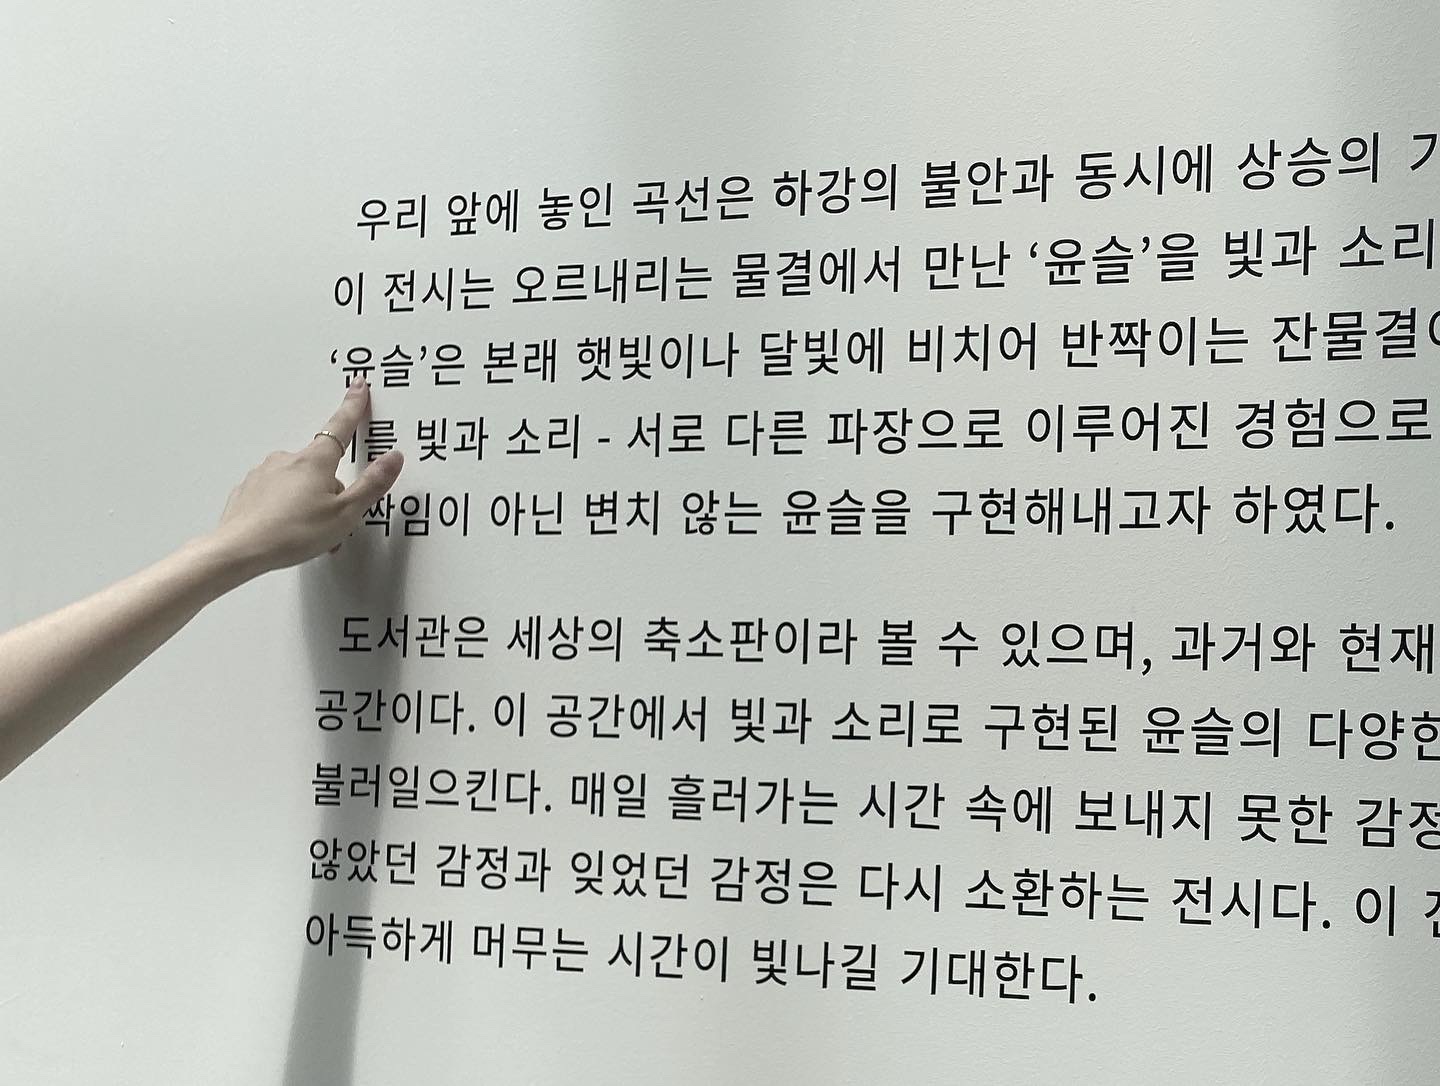 우리 앞에 놓인 곡선은 하강의 불안과 동시에 상승의
이 전시는 오르내리는 물결에서 만난 ‘윤슬’을 빛과 소리
‘윤슬’은 본래 햇빛이나 달빛에 비치어 반짝이는 잔물결
빛과 소리 - 서로 다른 파장으로 이루어진 경험으로
아닌 변치 않는 윤슬을 구현해내고자 하였다.
도서관은 세상의 축소판이라 볼 수 있으며, 과거와 현재
공간이다. 이 공간에서 빛과 소리로 구현된 윤슬의 다양한
불러일으킨다. 매일 흘러가는 시간 속에 보내지 못한 감정
않았던 감정과 잊었던 감정은 다시 소환하는 전시다. 이
아득하게 머무는 시간이 빛나길 기대한다.